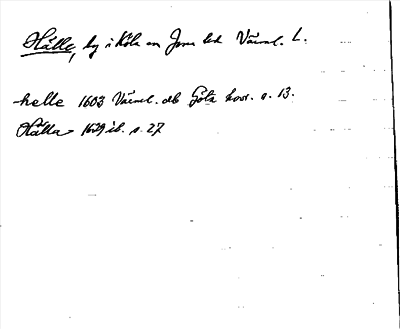 Hälle, by i Köla sn Jösse hd Värml. L.
helle 1603 Värml. ab Göta kovr. s. 13.
Hälla 1639 ib. s. 27